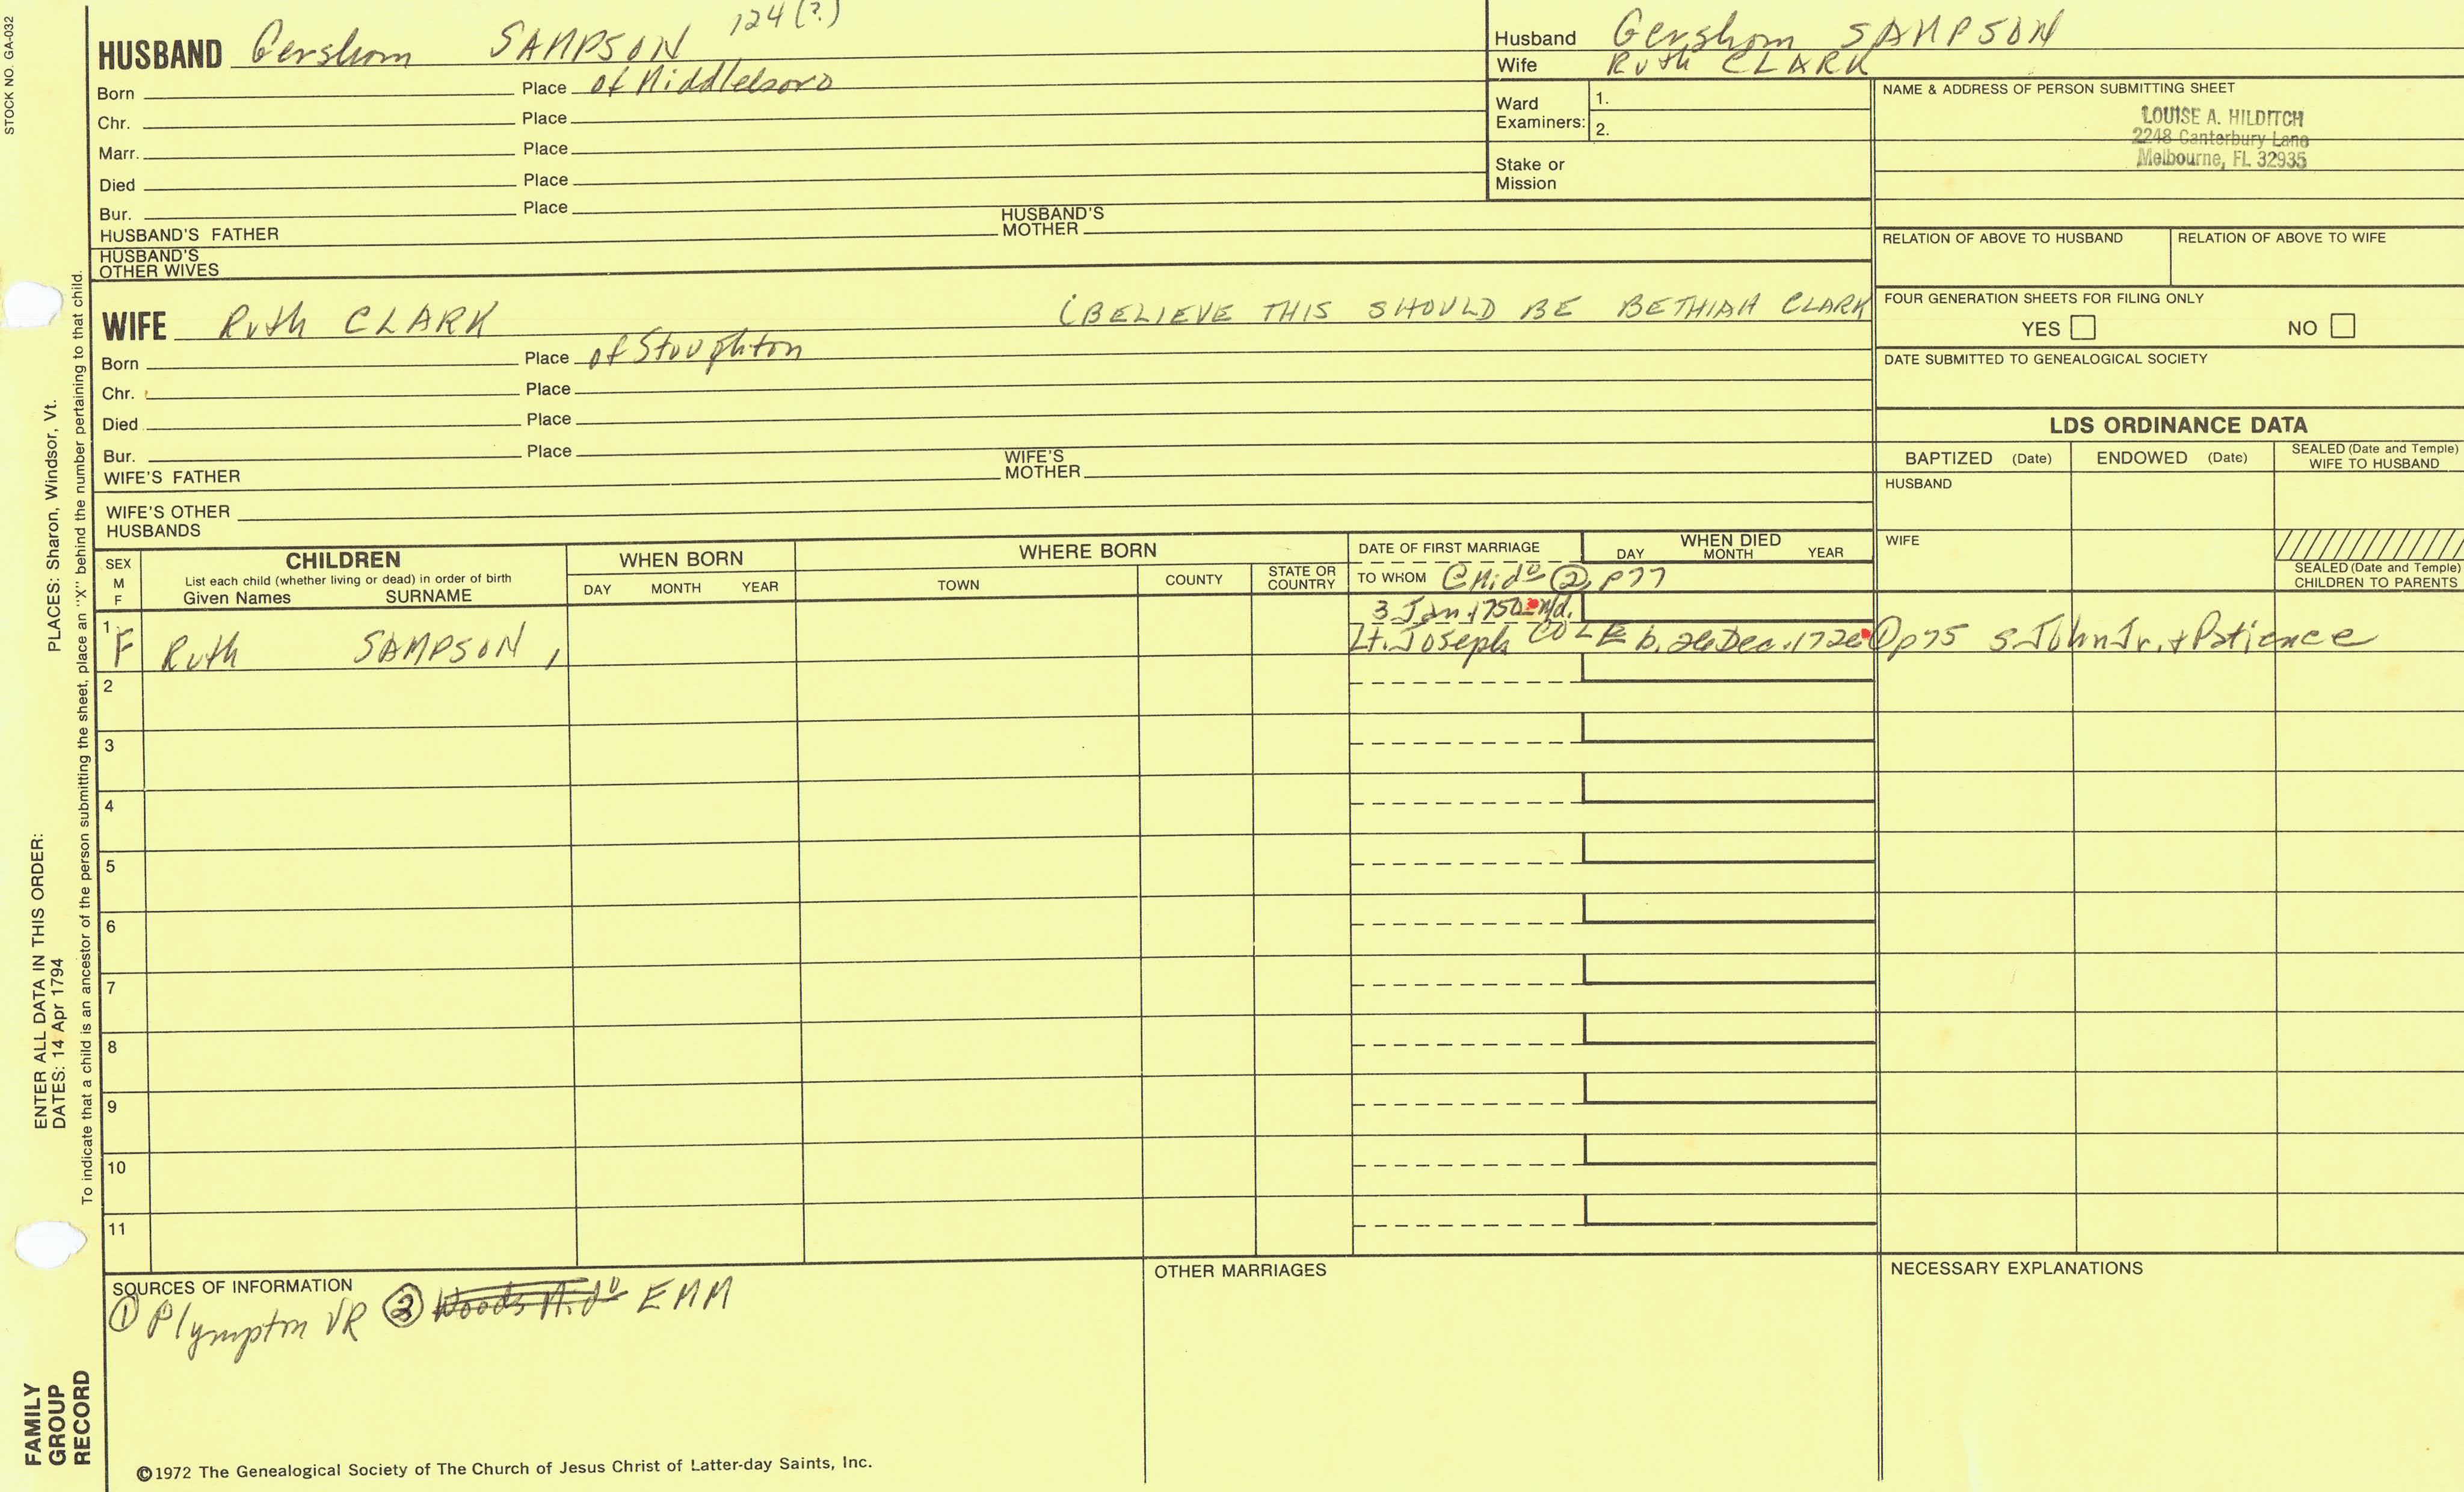 STOCK NO. GA-032
HUSBAND Gershom SAMPSON 124(?)
Born Place of Middleboro
Chr. Place
Marr. Place
Died Place
Bur. Place
HUSBAND'S FATHER HUSBAND'S MOTHER
HUSBAND'S OTHER WIVES
Husband Gershom SAMPSON
Wife Ruth CLARK
Ward Examiners: 1.
2.
Stake or Mission
NAME & ADDRESS OF PERSON SUBMITTING SHEET
LOUISE A. HILDITCH
2248 Canterbury Lane
Melbourne, FL 32935
RELATION OF ABOVE TO HUSBAND RELATION OF ABOVE TO WIFE
WIFE Ruth CLARK (BELIEVE THIS SHOULD BE BETHIAH CLARK
Born Place of Stoughton
Chr. Place
Died Place
Bur. Place
WIFE'S FATHER WIFE'S MOTHER
WIFE'S OTHER HUSBANDS
FOUR GENERATION SHEETS FOR FILING ONLY
YES NO
DATE SUBMITTED TO GENEALOGICAL SOCIETY
LDS ORDINANCE DATA
BAPTIZED (Date) ENDOWED (Date) SEALED (Date and Temple) WIFE TO HUSBAND
HUSBAND
WIFE
SEALED (Date and Temple) CHILDREN TO PARENTS
SEX M F
CHILDREN
List each child (whether living or dead) in order of birth
Given Names SURNAME
WHEN BORN
DAY MONTH YEAR
WHERE BORN
TOWN COUNTY STATE OR COUNTRY
DATE OF FIRST MARRIAGE
TO WHOM @Mido ② p77
WHEN DIED
DAY MONTH YEAR
3 Jan 1750
1 F Ruth SAMPSON, Lt. Joseph COLE b. 26 Dec. 1726 ① p75 s. John Jr. + Patience
2
3
4
5
6
7
8
9
10
11
SOURCES OF INFORMATION
① Plympton VR ② Woods Mido EMM
OTHER MARRIAGES
NECESSARY EXPLANATIONS
©1972 The Genealogical Society of The Church of Jesus Christ of Latter-day Saints, Inc.
ENTER ALL DATA IN THIS ORDER:
DATES: 14 Apr 1794 PLACES: Sharon, Windsor, Vt.
To indicate that a child is an ancestor of the person submitting the sheet, place an "X" behind the number pertaining to that child.
FAMILY
GROUP
RECORD